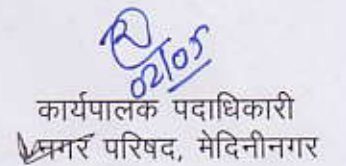 02/05
कार्यपालक पदाधिकारी
नगर परिषद, मेदिनीनगर